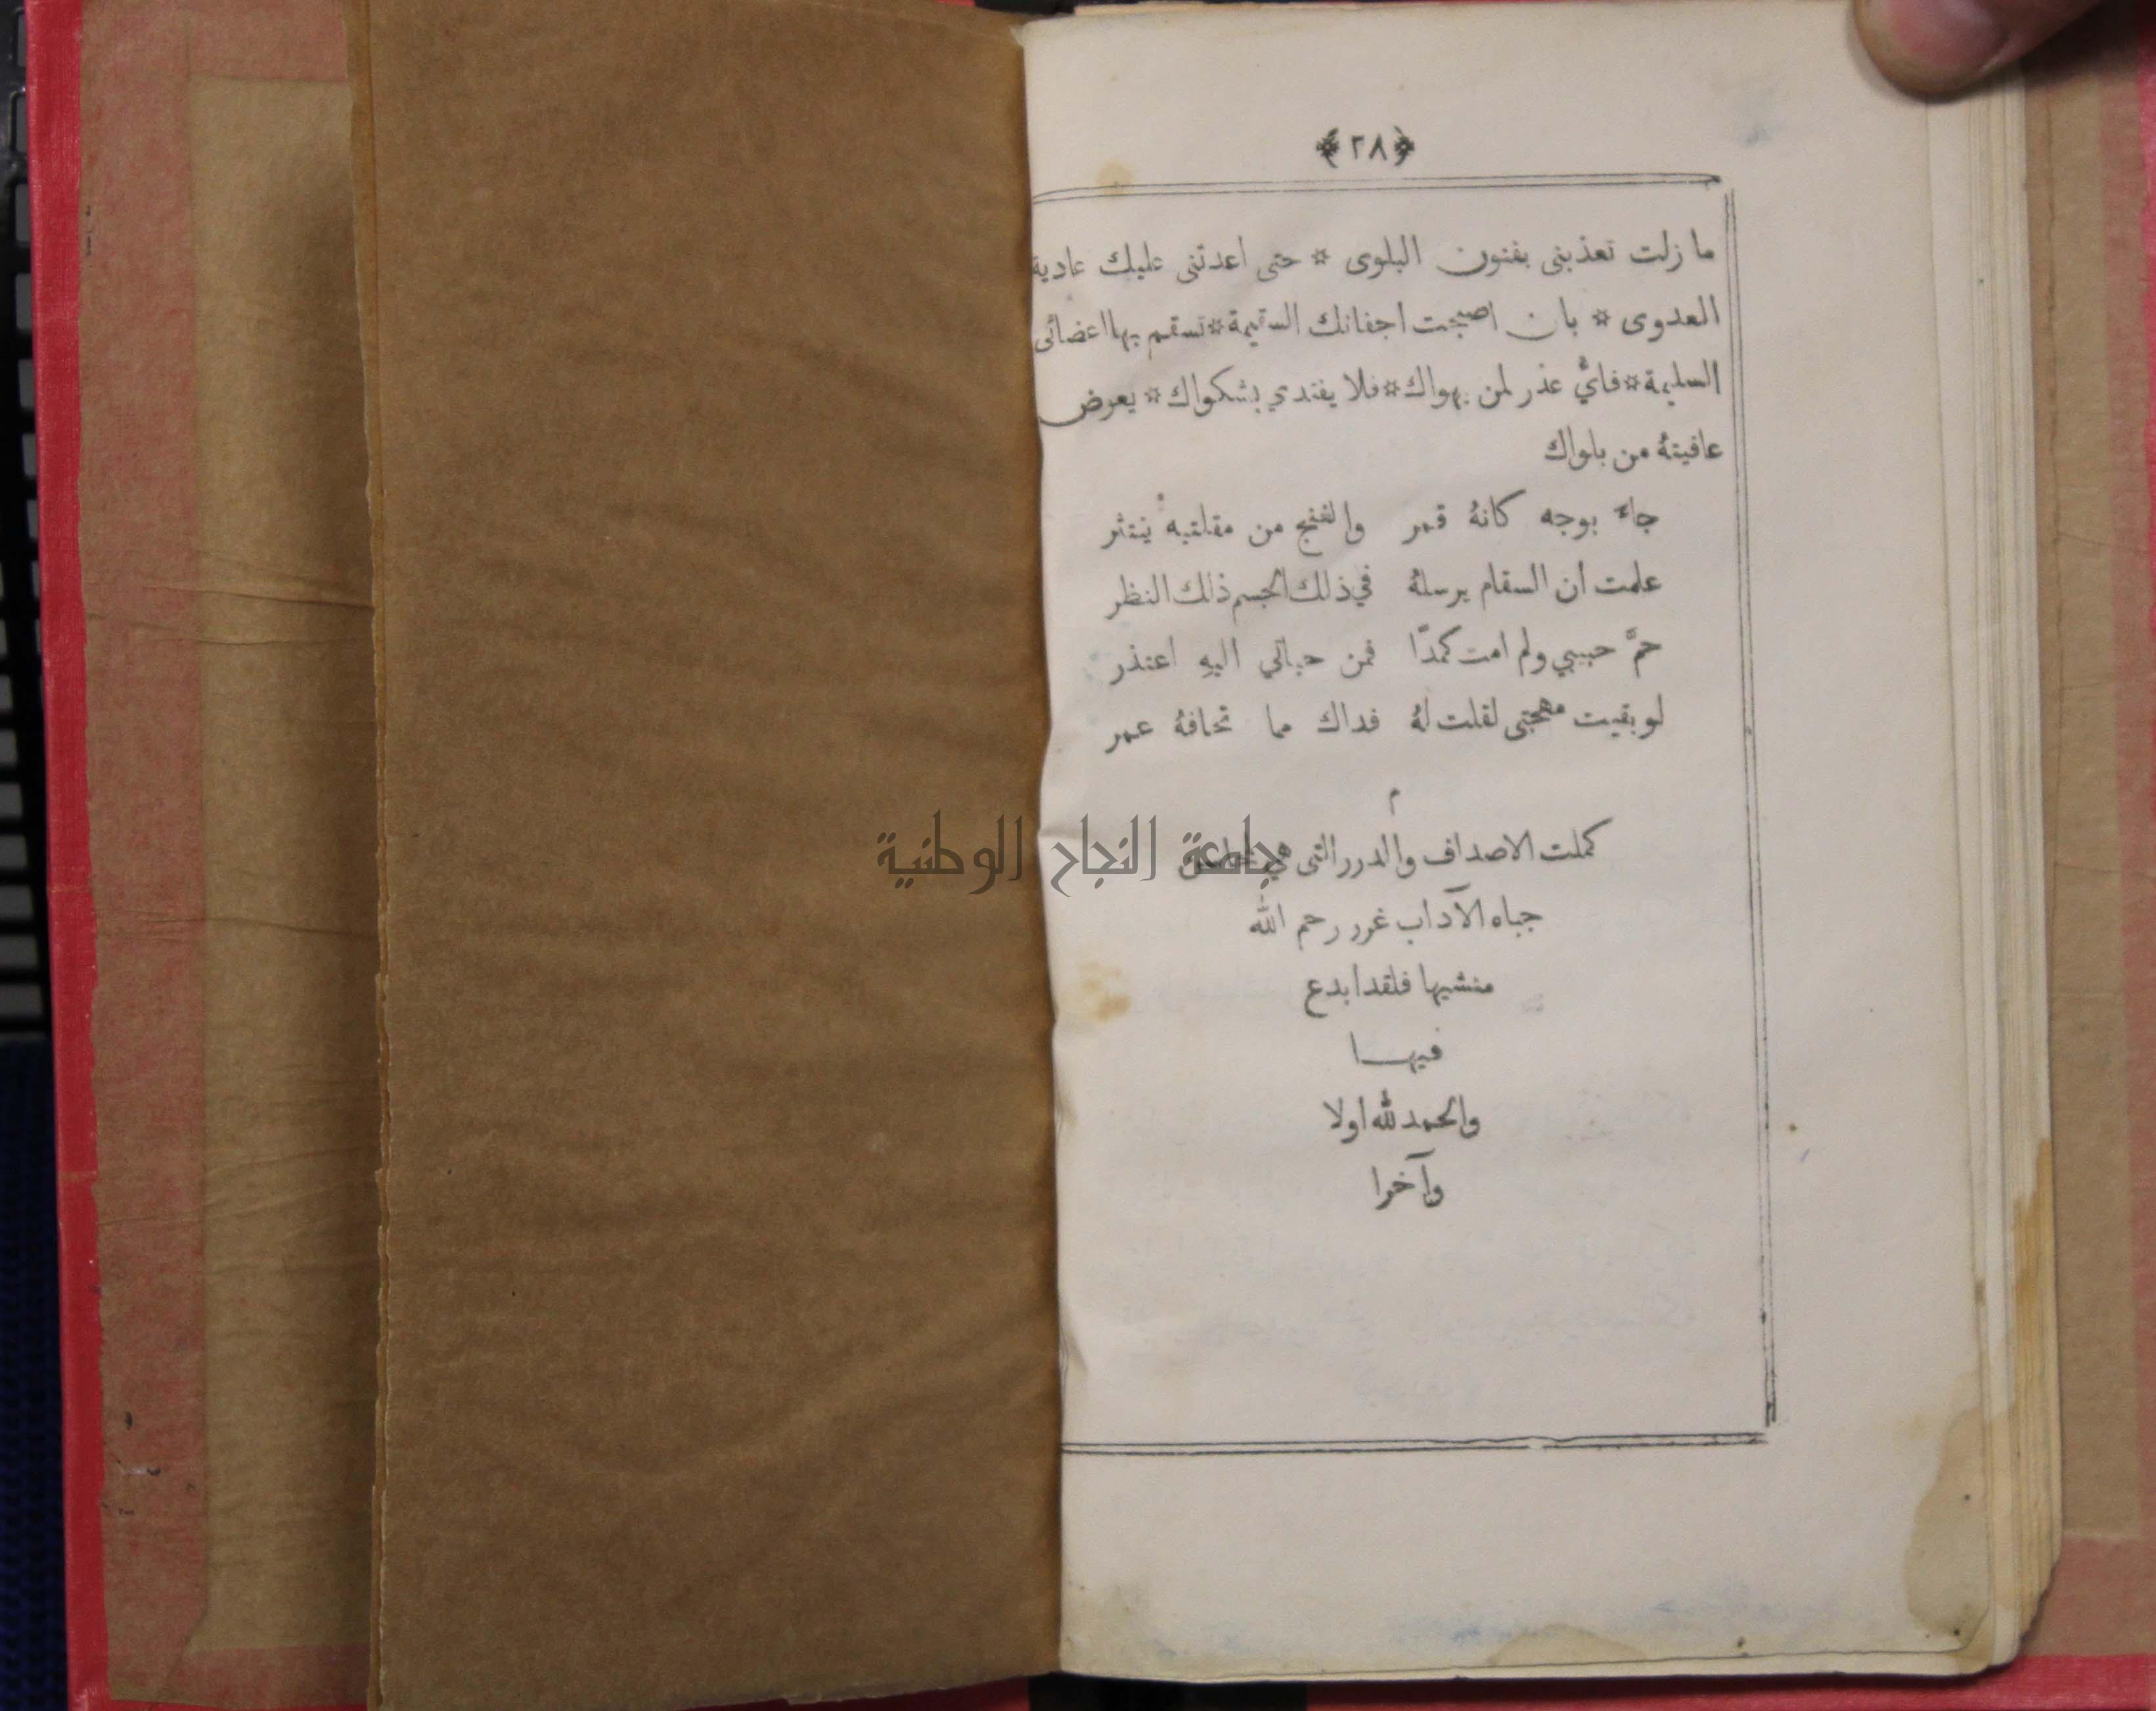 ﴿٢٨﴾
ما زلت تعذبنى بفنون البلوى * حتى اعدتنى عليك عادية
العدوى * بان اصبحت اجفانك السقيمة * تسقم بها اعضائى
السليمة * فايُّ عذر لمن يهواك * فلا يفتدي بشكواك * يعوض
عافيتهُ من بلواك
جاء بوجه كانهُ قمر والغنج من مقلتيه ينتثر
علمت أن السقام يرسلهُ في ذلك الجسم ذلك النظر
حمَّ حبيبي ولم امت كمدًا فمن حياتي اليهِ اعتذر
لو بقيت مهجتى لقلت لهُ فداك مما تخافهُ عمر
م
كملت الاصداف والدرر التى هي
جباه الآداب غرر رحم الله
منشيها فلقد ابدع
فيهـا
والحمد لله اولا
وآخرا
جامعة النجاح الوطنية